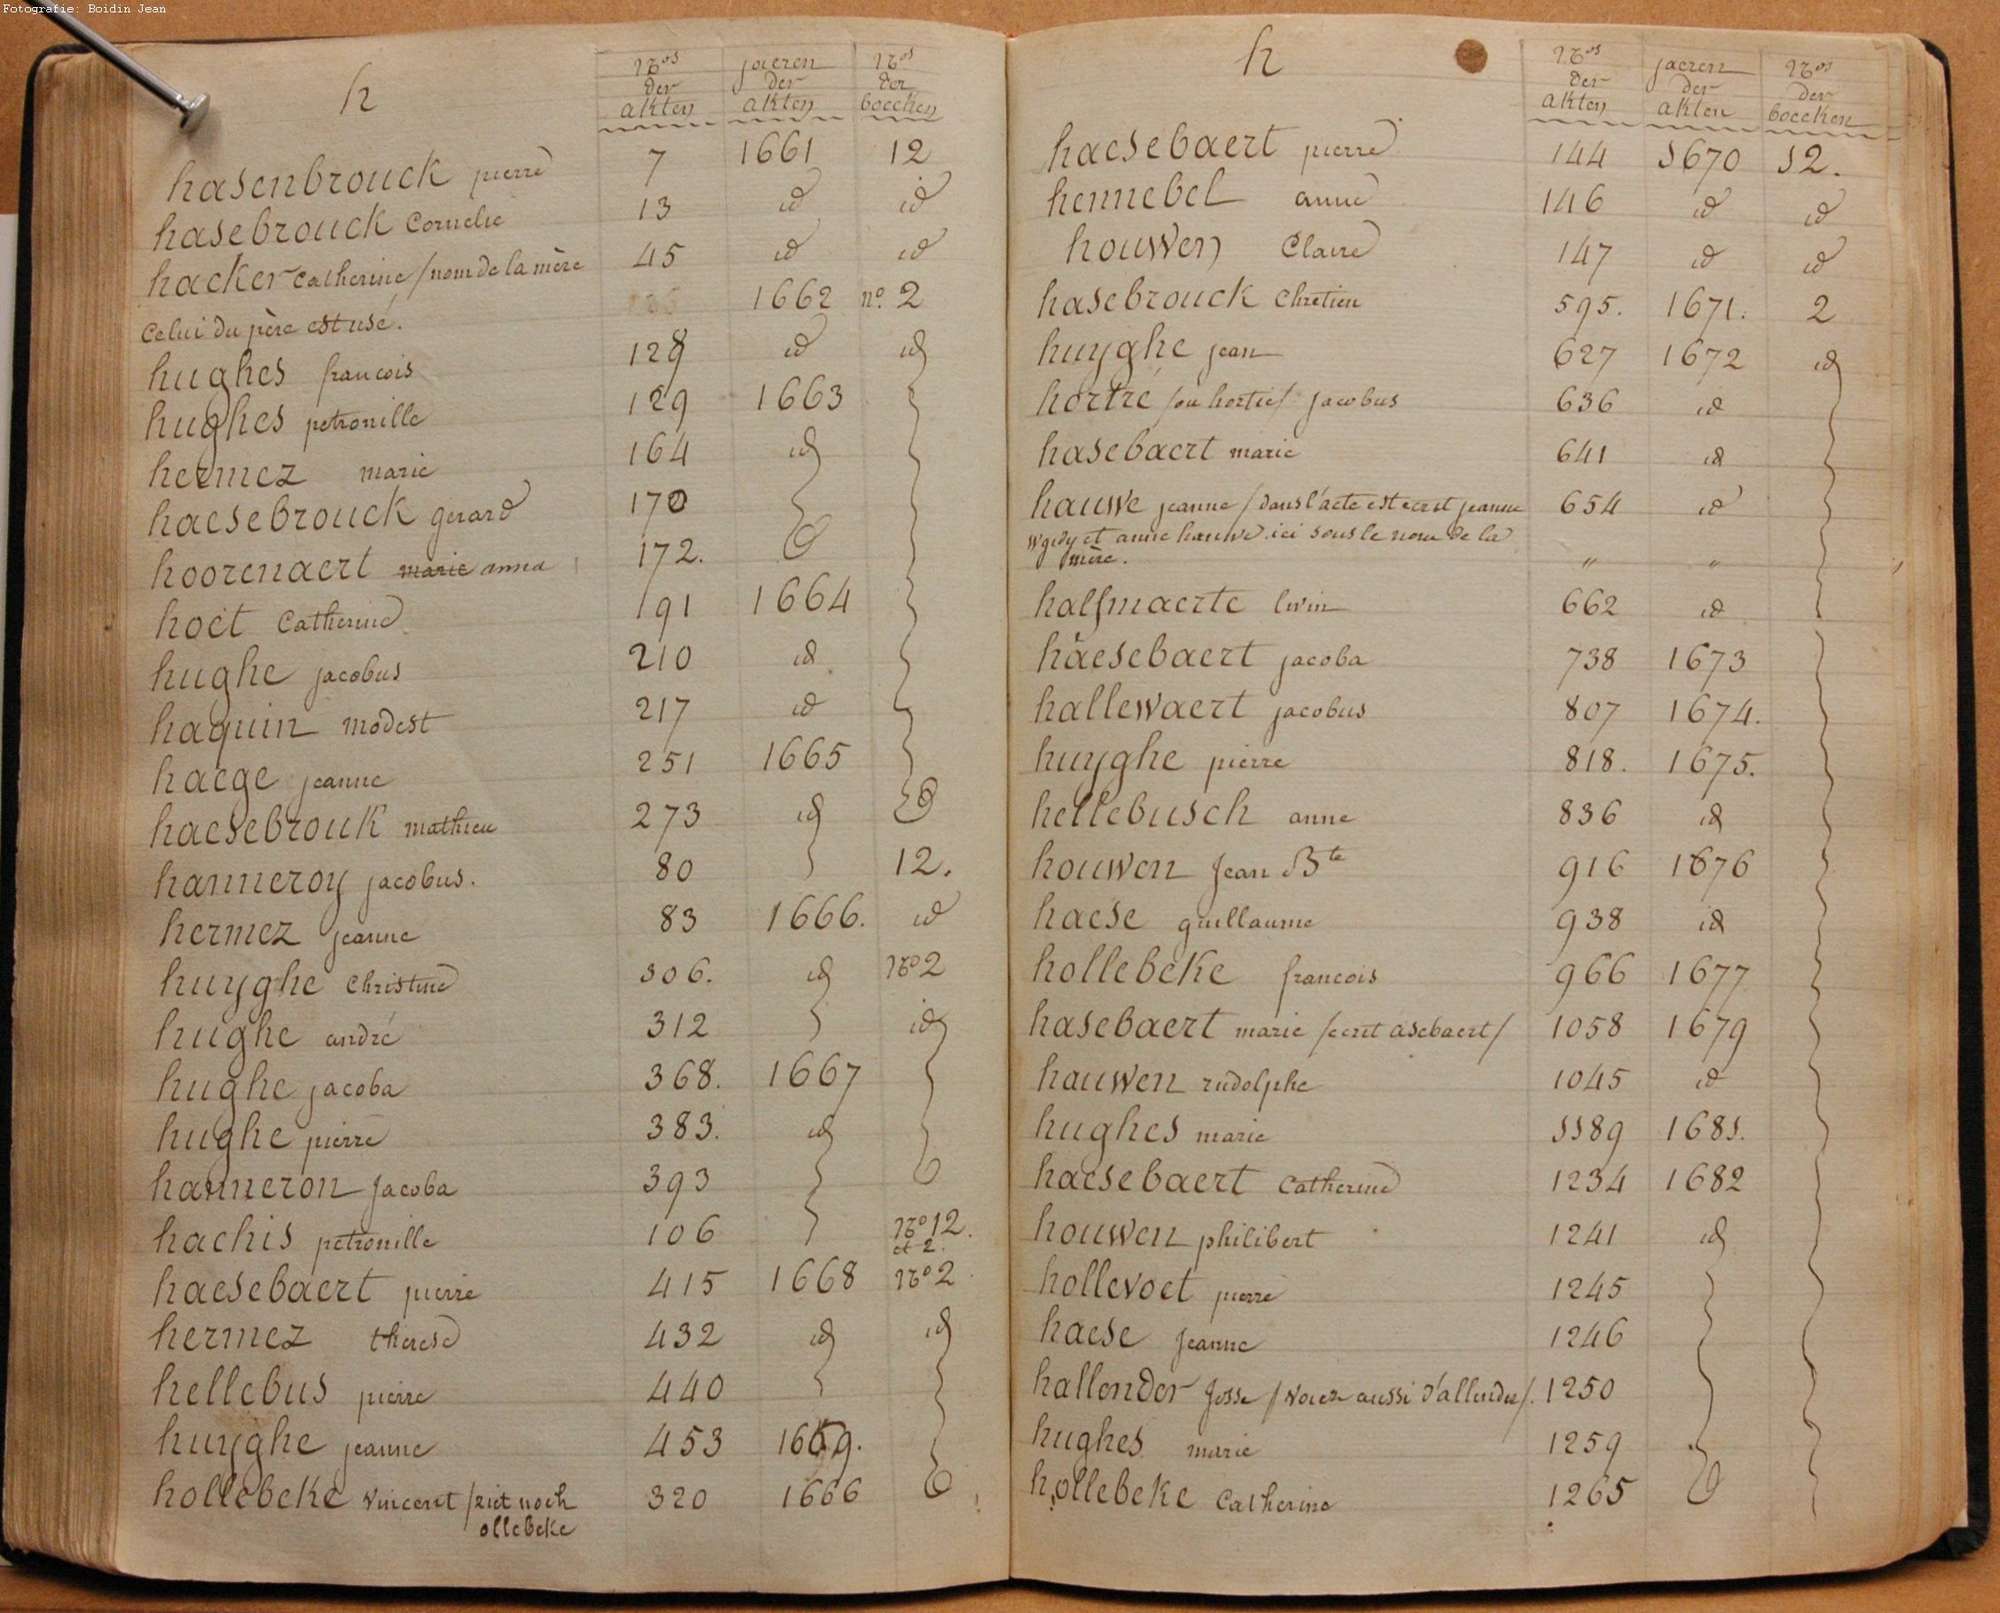 Fotografie: Boidin Jean
h
Nos der akten jaeren der akten Nos der boecken
hasenbrouck pierre 7 1661 12
hasebrouck Cornelie 13 id id
hacker catherine / nom de la mère 45 id id
celui du père est usé. 1662 no. 2
hughes francois 128 id id
hughes petronille 129 1663
hermez marie 164 id
haesebrouck gerard 170
hoorenaert marie anna 172.
hoet Catherine 191 1664
hughe jacobus 210 id
haquin modest 217 id
haege jeanne 251 1665
haesebrouk mathieu 273 id
hanneroy jacobus. 80 12.
hermez jeanne 83 1666. id
huyghe christine 306. id No 2
hughe andré 312 id
hughe jacoba 368. 1667
hughe pierre 383. id
hanneron Jacoba 393
hachis petronille 106 No 12.
et 2.
haesebaert pierre 415 1668 No 2
hermez therese 432 id id
hellebus pierre 440
huyghe jeanne 453 1669.
hollebeke vincent / ziet noch 320 1666
ollebeke
h
Nos der akten jaeren der akten Nos der boecken
haesebaert pierre 144 1670 12.
hennebel anne 146 id id
houwen Claire 147 id id
hasebrouck chretien 595. 1671. 2
huyghe jean 627 1672 id
hortré / ou hortie / jacobus 636 id
hasebaert marie 641 id
hauwe jeanne / dans l'acte est ecrit jeanne 654 id
et anne hauwe. ici sous le nom de la
mère. " "
halfmaerte livin 662 id
haesebaert jacoba 738 1673
hallewaert jacobus 807 1674.
huyghe pierre 818. 1675.
hellebusch anne 836 id
houwen Jean Bte 916 1676
haese guillaume 938 id
hollebeke francois 966 1677
hasebaert marie / ecrit asebaert / 1058 1679
hauwen rudolphe 1045 id
hughes marie 1189 1681.
haesebaert Catherine 1234 1682
houwen philibert 1241 id
hollevoet pierre 1245
haese Jeanne 1246
hallender Josse / voiez aussi d'allender /. 1250
hughes marie 1259
hollebeke Catherine 1265